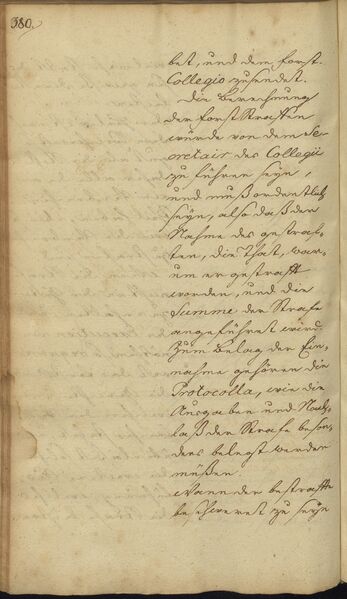 380.
bet, und dem forst.
Collegio zusendet.
Die Berechnung
der forst Straffen
würde von dem Se-
cretair des Collegii
zu führen seyn,
und muß ordentlich
seyn, also daß der
Nahme des gestraf-
ten, die That, war-
um er gestrafft
worden, und die
Summe der Strafe
angeführet wird.
Zum Belag der Ein-
nahme gehören die
Protocolla, wie die
Ausgaben und Nach-
laß der Strafe beson-
ders belegt werden
müßen.
Wann der bestraffte
beschweret zu seyn